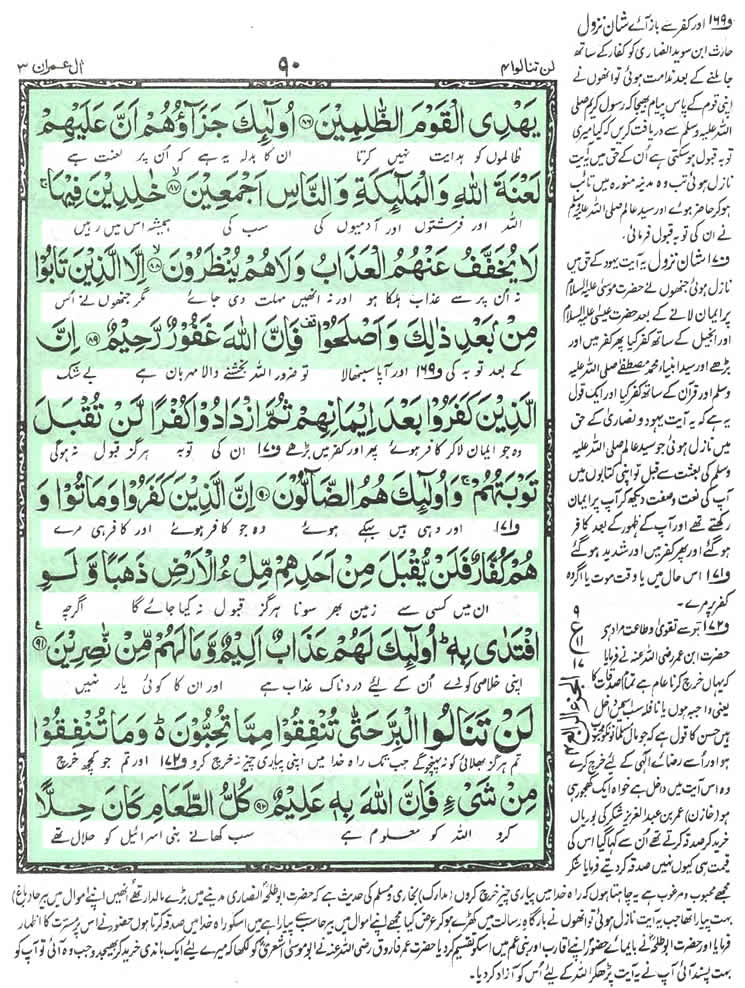 لن تنالوا ۴
۹۰
اٰل عمرٰن ۳
يَهْدِى الْقَوْمَ الظّٰلِمِيْنَ ۝۸۶ اُولٰٓئِكَ جَزَآؤُهُمْ اَنَّ عَلَيْهِمْ
ظالموں کو ہدایت نہیں کرتا ان کا بدلہ یہ ہے کہ اُن پر لعنت ہے
لَعْنَةَ اللّٰهِ وَالْمَلٰٓئِكَةِ وَالنَّاسِ اَجْمَعِيْنَ ۝۸۷ خٰلِدِيْنَ فِيْهَا
اللہ اور فرشتوں اور آدمیوں کی سب کی ہمیشہ اس میں رہیں
لَا يُخَفَّفُ عَنْهُمُ الْعَذَابُ وَلَا هُمْ يُنْظَرُوْنَ ۝۸۸ اِلَّا الَّذِيْنَ تَابُوْا
نہ اُن پر سے عذاب ہلکا ہو اور نہ انھیں مہلت دی جائے مگر جنھوں نے اُس
مِنْۢ بَعْدِ ذٰلِكَ وَاَصْلَحُوْا فَاِنَّ اللّٰهَ غَفُوْرٌ رَّحِيْمٌ ۝۸۹ اِنَّ
کے بعد توبہ کی و۱۶۹ اور آپا سنبھالا تو ضرور اللہ بخشنے والا مہربان ہے بے شک
الَّذِيْنَ كَفَرُوْا بَعْدَ اِيْمَانِهِمْ ثُمَّ ازْدَادُوْا كُفْرًا لَّنْ تُقْبَلَ
وہ جو ایمان لا کر کافر ہوئے پھر اور کفر میں بڑھے و۱۷۰ ان کی توبہ ہرگز قبول نہ ہوگی
تَوْبَتُهُمْ وَاُولٰٓئِكَ هُمُ الضَّآلُّوْنَ ۝۹۰ اِنَّ الَّذِيْنَ كَفَرُوْا وَمَاتُوْا وَ
و۱۷۱ اور وہی ہیں بہکے ہوئے وہ جو کافر ہوئے اور کافر ہی مرے
هُمْ كُفَّارٌ فَلَنْ يُّقْبَلَ مِنْ اَحَدِهِمْ مِّلْءُ الْاَرْضِ ذَهَبًا وَّلَوِ
ان میں کسی سے زمین بھر سونا ہرگز قبول نہ کیا جائے گا اگرچہ
افْتَدٰى بِهٖ اُولٰٓئِكَ لَهُمْ عَذَابٌ اَلِيْمٌ وَّمَا لَهُمْ مِّنْ نّٰصِرِيْنَ ۝۹۱
اپنی خلاصی کو دے اُن کے لیئے دردناک عذاب ہے اور ان کا کوئی یار نہیں
لَنْ تَنَالُوا الْبِرَّ حَتّٰى تُنْفِقُوْا مِمَّا تُحِبُّوْنَ وَمَا تُنْفِقُوْا
تم ہرگز بھلائی کو نہ پہنچو گے جب تک راہ خدا میں اپنی پیاری چیز نہ خرچ کرو و۱۷۲ اور تم جو کچھ خرچ
مِنْ شَىْءٍ فَاِنَّ اللّٰهَ بِهٖ عَلِيْمٌ ۝۹۲ كُلُّ الطَّعَامِ كَانَ حِلًّا
کرو اللہ کو معلوم ہے سب کھانے بنی اسرائیل کو حلال تھے
و۱۶۹ اور کفر سے باز آئے شان نزول
حارث ابن سوید انصاری کو کفار کے ساتھ
جا ملنے کے بعد ندامت ہوئی تو انھوں نے
اپنی قوم کے پاس پیام بھیجا کہ رسول کریم صلی
اللہ علیہ وسلم سے دریافت کریں کہ کیا میری
توبہ قبول ہوسکتی ہے اُن کے حق میں یہ آیت
نازل ہوئی تب وہ مدینہ منورہ میں تائب
ہو کر حاضر ہوئے اور سید عالم صلی اللہ علیہ وسلم
نے ان کی توبہ قبول فرمائی۔
و۱۷۰ شان نزول یہ آیت یہود کے حق میں
نازل ہوئی جنھوں نے حضرت موسیٰ علیہ السلام
پر ایمان لانے کے بعد حضرت عیسیٰ علیہ السلام
اور انجیل کے ساتھ کفر کیا پھر کفر میں اور
بڑھے اور سید انبیاء محمد مصطفےٰ صلی اللہ علیہ
وسلم اور قرآن کے ساتھ کفر کیا اور ایک قول
یہ ہے کہ یہ آیت یہود و نصاریٰ کے حق
میں نازل ہوئی جو سید عالم صلی اللہ علیہ
وسلم کی بعثت سے قبل تو اپنی کتابوں میں
آپ کی نعت و صفت دیکھ کر آپ پر ایمان
رکھتے تھے اور آپ کے ظہور کے بعد کافر
ہو گئے اور پھر کفر میں اور شدید ہو گئے
و۱۷۱ اس حال میں یا وقت موت یا اگر وہ
کفر پر مرے۔
و۱۷۲ بر سے تقویٰ و طاعت مراد ہے
حضرت ابن عمر رضی اللہ عنہ نے فرمایا
کہ یہاں خرچ کرنا عام ہے تمام صدقات کا
یعنی واجبہ ہوں یا نافلہ سب اس میں داخل
ہیں حسن کا قول ہے کہ جو مال مسلمانوں کو محبوب
ہو اور اُسے رضائے الٰہی کے لئے خرچ کرے
وہ اس آیت میں داخل ہے خواہ ایک کھجور ہی
ہو (خازن) عمر بن عبدالعزیز شکر کی بوریاں
خرید کر صدقہ کرتے تھے اُن سے کہا گیا اس کی
قیمت ہی کیوں نہیں صدقہ کردیتے فرمایا شکر
۹
ع
۱۱
۱۷
الجزء الرابع ۴
مجھے محبوب و مرغوب ہے یہ چاہتا ہوں کہ راہ خدا میں پیاری چیز خرچ کروں (مدارک) بخاری و مسلم کی حدیث ہے کہ حضرت ابو طلحہ انصاری مدینے میں بڑے مالدار تھے انھیں اپنے اموال میں بیرحا (باغ)
بہت پیارا تھا جب یہ آیت نازل ہوئی تو انھوں نے بارگاہِ رسالت میں کھڑے ہو کر عرض کیا مجھے اپنے اموال میں بیرحا سب سے پیارا ہے میں اسکو راہ خدا میں صدقہ کرتا ہوں حضور نے اس پر مسرت کا اظہار
فرمایا اور حضرت ابو طلحہ نے بایمائے حضور اپنے اقارب اور بنی عم میں اسکو تقسیم کردیا حضرت عمر فاروق رضی اللہ عنہ نے ابو موسیٰ اشعری کو لکھا کہ میرے لئے ایک باندی خرید کر بھیجدو جب وہ آئی تو آپ کو
بہت پسند آئی آپ نے یہ آیت پڑھ کر اللہ کے لئے اُس کو آزاد کردیا۔